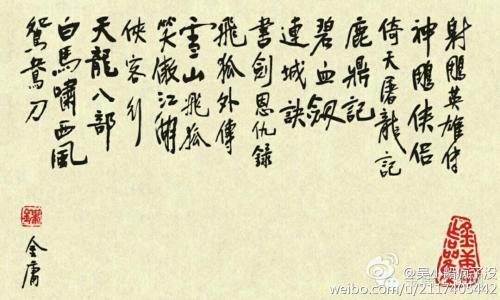 射鵰英雄传
神鵰侠侣
倚天屠龍記
鹿鼎記
碧血劍
連城訣
書劍恩仇錄
飛狐外傳
雪山飛狐
笑傲江湖
侠客行
天龍八部
白馬嘯西風
鴛鴦刀
金庸
weibo.com/d/2117405442